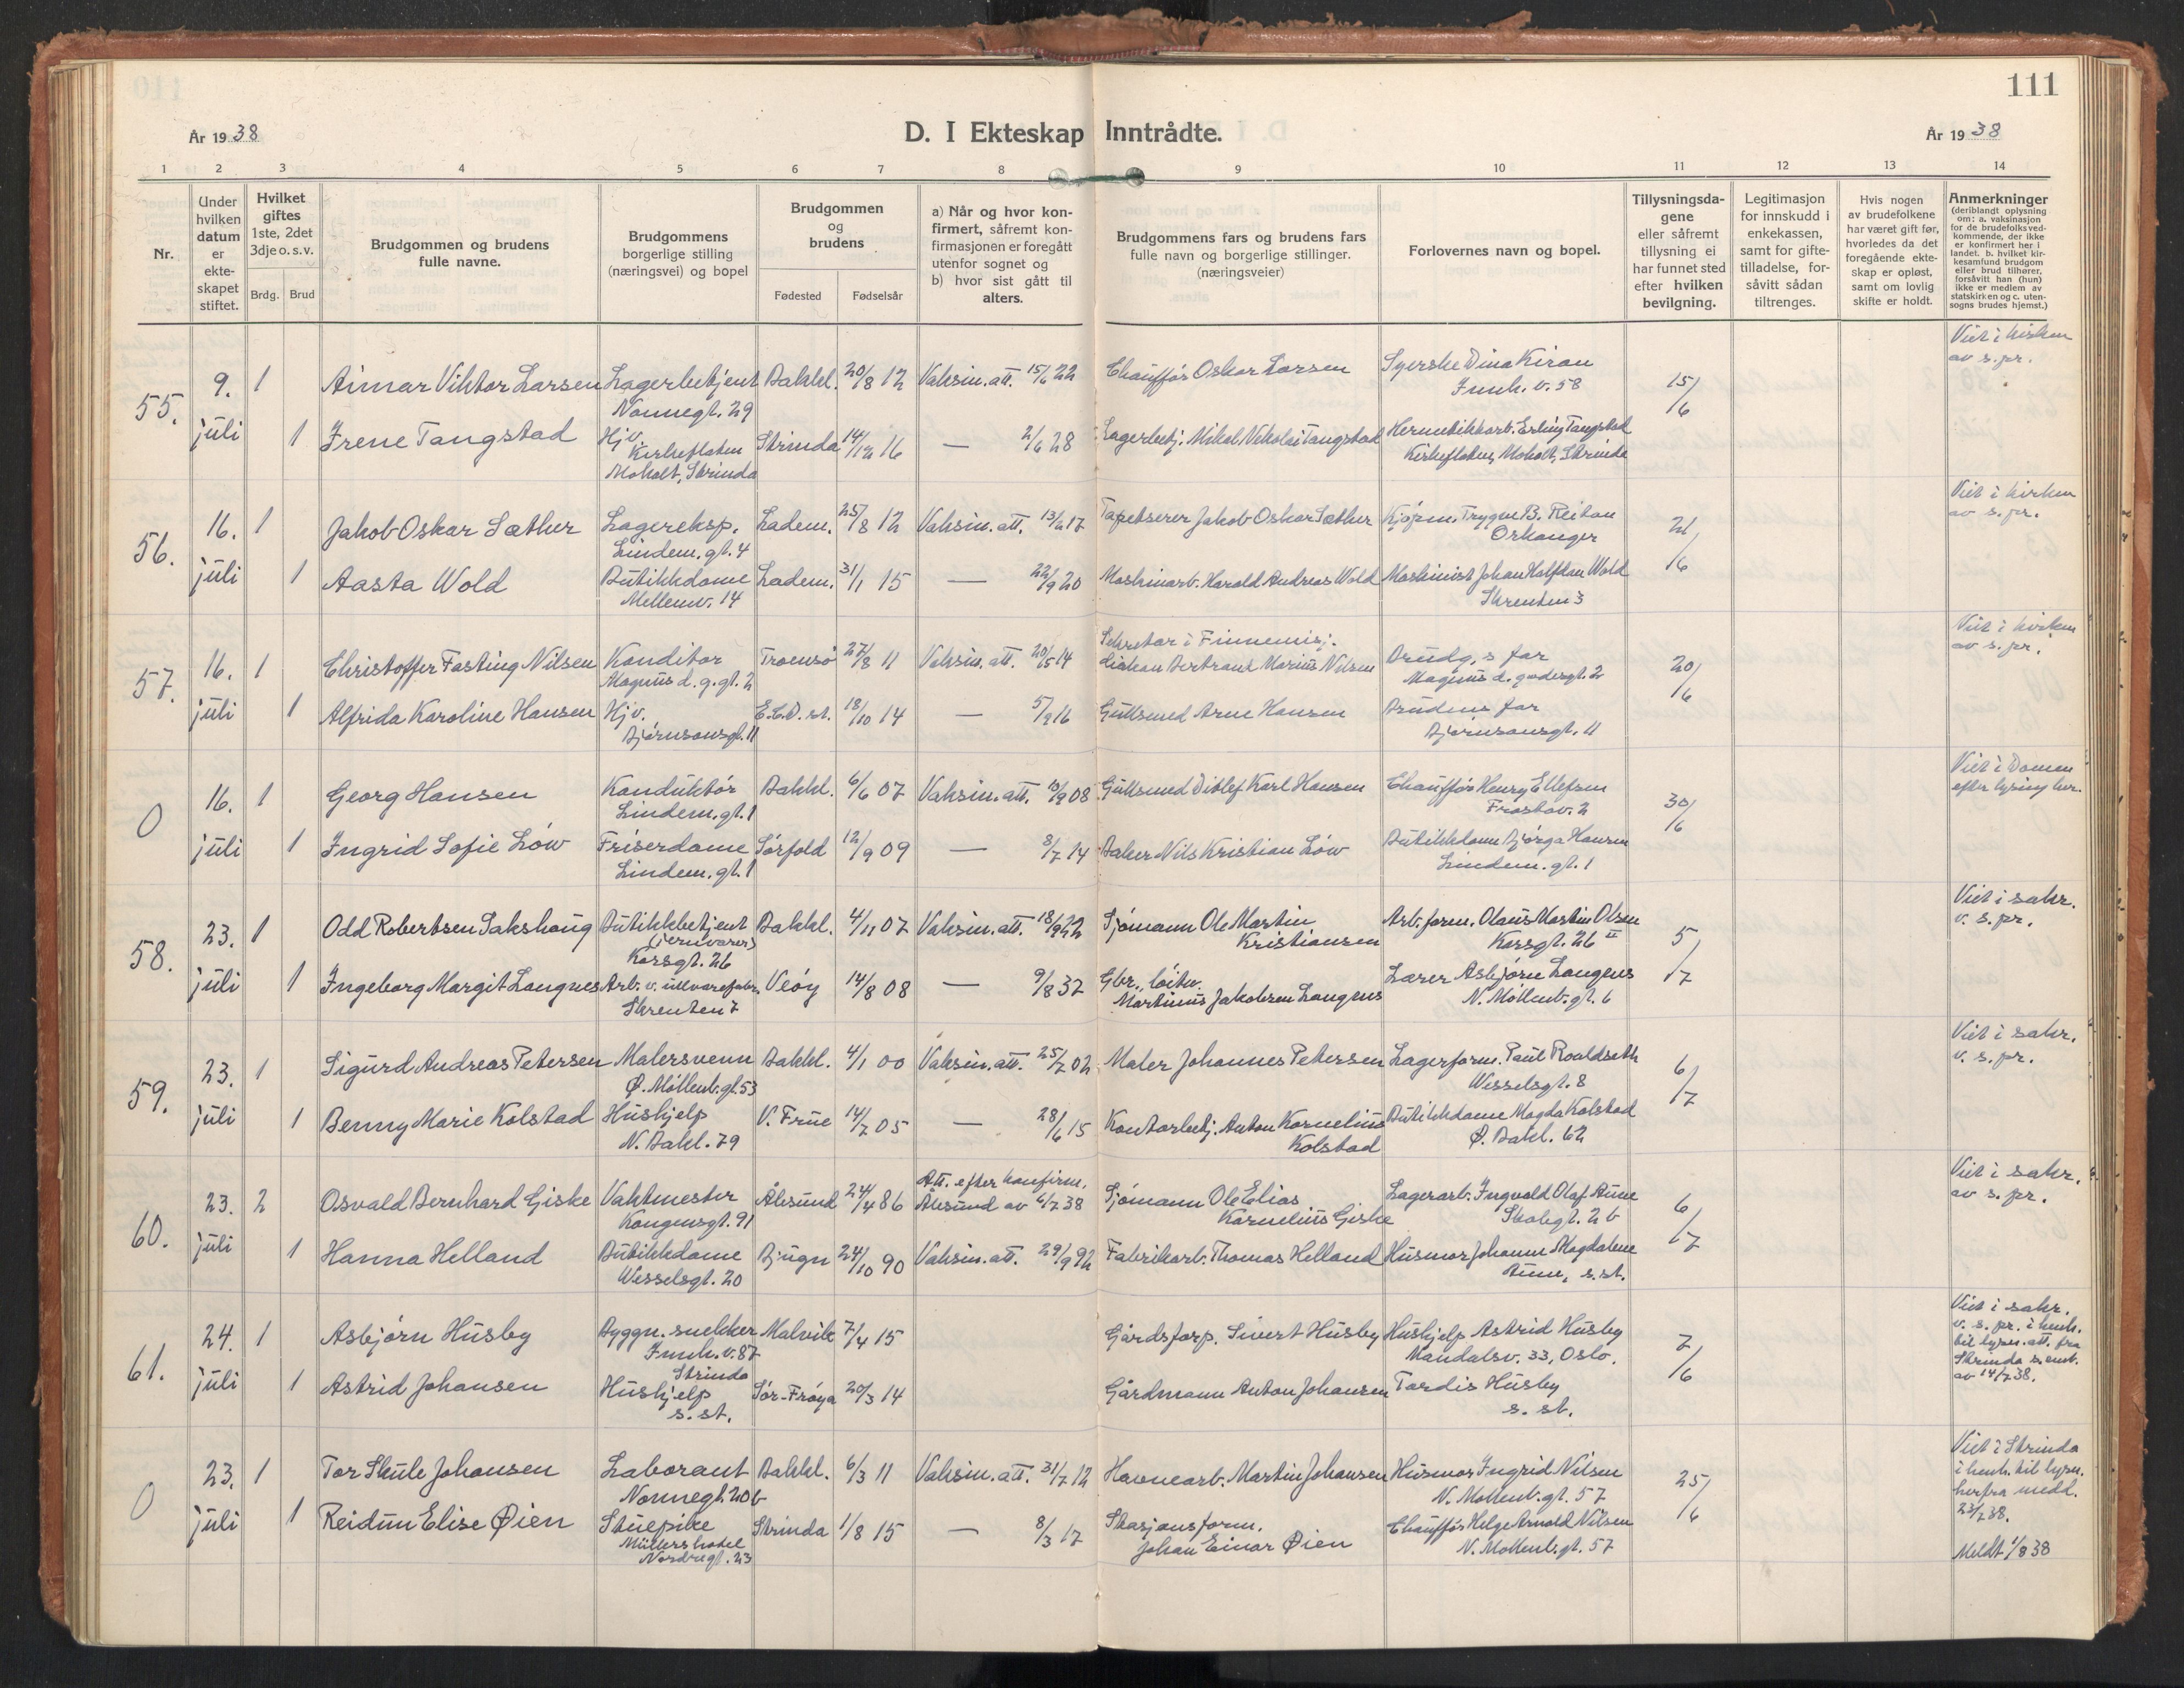 111
År 1938
D. I Ekteskap Inntrådte.
År 1938
1 2 3 4 5 6 7 8 9 10 11 12 13 14
Nr.
Under hvilken datum er ekte-skapet stiftet.
Hvilket giftes 1ste, 2det 3dje o. s. v.
Brdg. Brud
Brudgommen og brudens fulle navne.
Brudgommens borgerlige stilling (næringsvei) og bopel
Brudgommen og brudens
Fødested Fødselsår
a) Når og hvor kon-firmert, såfremt kon-firmasjonen er foregått utenfor sognet og
b) hvor sist gått til alters.
Brudgommens fars og brudens fars fulle navn og borgerlige stillinger. (næringsveier)
Forlovernes navn og bopel.
Tillysningsda-gene eller såfremt tillysning ei har funnet sted efter hvilken bevilgning.
Legitimasjon for innskudd i enkekassen, samt for gifte-tilladelse, for-såvitt sådan tiltrenges.
Hvis nogen av brudefolkene har været gift før, hvorledes da det foregående ekte-skap er opløst, samt om lovlig skifte er holdt.
Anmerkninger (deriblandt oplysning om: a. vaksinasjon for de brudefolks ved-kommende, der ikke er konfirmert her i landet. b. hvilket kir-kesamfund brudgom eller brud tilhører, forsåvitt han (hun) ikke er medlem av statskirken og c. uten-sogns brudes hjemst.)
55. 9. juli
1 Aimar Viktor Larsen Lagerbetjent Bakkl. 20/8 12 Vaksin. att. 15/6 22 Chauffør Oskar Larsen Syerske Dina Kiran 15/6 Viet i kirken
Nonnegt. 29 Innh. v. 58 av s. pr.
1 Irene Tangstad Hjv. Strinda 14/12 16 — 2/6 28 Lagerbetj. Mikal Nikolai Tangstad Hermetikkarb. Erling Tangstad
Kirkeflaten Moholt, Strinda Kirkeflaten, Moholt, Strinda
56. 16. juli
1 Jakob Oskar Sæther Lagereksp. Ladem. 25/8 12 Vaksin. att. 13/6 17 Tapetserer Jakob Oskar Sæther Kjøpm. Trygve B. Reitan 21/6 Viet i kirken
Lindem. gt. 4 Orkanger av s. pr.
1 Aasta Wold Butikkdame Ladem. 31/1 15 — 22/9 20 Maskinarb. Harald Andreas Wold Maskinist Johan Halfdan Wold
Mellemv. 14 Skrenten 3
57. 16. juli
1 Christoffer Fasting Nilsen Konditor Tromsø 27/8 11 Vaksin. att. 20/5 14 Sekretær i Finnemisj. Brudg,s far 20/6 Viet i kirken
Magnus d. g. gt. 2 Bertrand Marius Nilsen Magnus d. godesgt. 2 av s. pr.
1 Alfrida Karoline Hansen Hjv. 18/10 14 — 5/9 16 Gullsmed Arne Hansen Brudens far
Bjørnsonsgt. 11 Bjørnsonsgt. 11
0 16. juli
1 Georg Hansen Konduktør Bakkl. 6/6 07 Vaksin. att. 10/9 08 Gullsmed Ditlef Karl Hansen Chauffør Henry Ellefsen 30/6 Viet i Domen
Lindem. gt. 1 Frostav. 2 efter lysing her.
1 Ingrid Sofie Løw Friserdame Sørfold 12/9 09 — 8/7 14 Baker Nils Kristian Løw Butikkdame Bjørga Hansen
Lindem. gt. 1 Lindem. gt. 1
58. 23. juli
1 Odd Robertsen Sakshaug Butikkbetjent Bakkl. 4/11 07 Vaksin. att. 18/9 22 Sjømann Ole Martin Arb. form. Olaus Martin Olsen 5/7 Viet i sakr.
(jernvarer) Korsgt. 26 Kristiansen Korsgt. 26 II v. s. pr.
1 Ingeborg Margit Langnes Arb. v. ullvarefabr. Veøy 14/8 08 — 9/8 32 Gbr., løitn. Lærer Asbjørn Langnes
Skrenten 7 Martinus Jakobsen Langnes N. Møllenb. gt. 6
59. 23. juli
1 Sigurd Andreas Petersen Malersvenn Bakkl. 4/1 00 Vaksin. att. 25/7 02 Maler Johannes Petersen Lagerform. Paul Rouldseth 6/7 Viet i sakr.
Ø. Møllenb. gt. 53 Wesselsgt. 8 v. s. pr.
1 Benny Marie Kolstad Hushjelp V. Frue 14/7 05 — 28/6 15 Kontorbetj. Anton Kornelius Butikkdame Magda Kolstad
N. Bakl. 79 Kolstad Ø. Bakl. 62
60. 23. juli
2 Osvald Bernhard Giske Vaktmester Ålesund 24/4 86 Att. efter konfirm. Ålesund av 6/7 38 Sjømann Ole Elias Lagerarb. Ingvald Olaf Aune 6/7 Viet i sakr.
Kongensgt. 91 Kornelius Giske Skolegt. 2 b av s. pr.
1 Hanna Helland Butikkdame Bjugn 24/10 90 Vaksin. att. 29/9 92 Fabrikarb. Thomas Helland Husmor Johanne Magdalene
Wesselsgt. 20 Aune, s. st.
61. 24. juli
1 Asbjørn Husby Byggn. snekker Malvik 7/4 15 Gårdsforp. Sivert Husby Hushjelp Astrid Husby 7/6 Viet i sakr.
Innh. v. 87 Strinda Mandalsv. 33, Oslo. v. s. pr. i henh. til lysn. att. fra Strinda s. emb. av 14/7 38.
1 Astrid Johansen Hushjelp Sør-Frøya 20/3 14 Gårdmann Anton Johansen Tordis Husby
s. st. s. st.
0 23. juli
1 Tor Skule Johansen Laborant Bakkl. 6/3 11 Vaksin. att. 31/7 12 Havnearb. Martin Johansen Husmor Ingrid Nilsen 25/6 Viet i Strinda
Nonnegt. 20 b N. Møllenb. gt. 57 i henh. til lysn. herfra medd. 23/7 38.
1 Reidun Elise Øien Stuepike Strinda 1/8 15 — 8/3 17 Stasjonsform. Chauffør Helge Arnold Nilsen
Müllers hotel Nordregt. 23 Johan Einar Øien N. Møllenb. gt. 57 Meldt 1/8 38